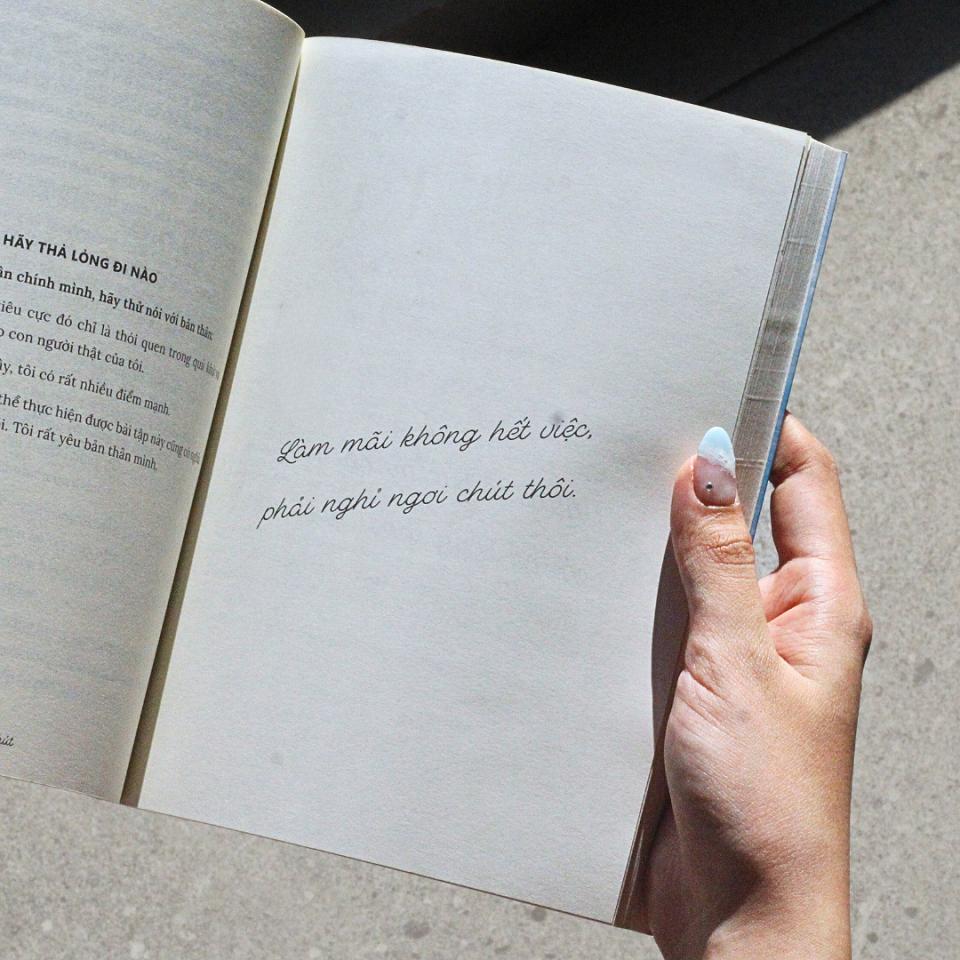 HÃY THẢ LỎNG ĐI NÀO
chính mình, hãy thử nói với bản thân:
cực đó chỉ là thói quen trong quá
con người thật của tôi.
tôi có rất nhiều điểm mạnh.
thể thực hiện được bài tập này cũng
Tôi rất yêu bản thân mình.
Làm mãi không hết việc,
phải nghỉ ngơi chút thôi.